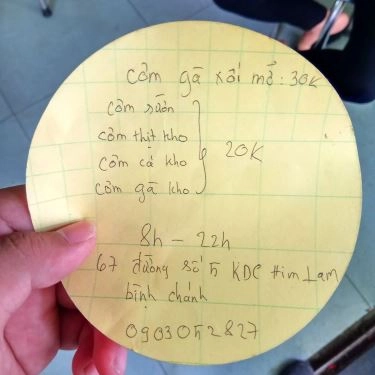 cơm gà xối mỡ : 30K
cơm sườn
cơm thịt kho
cơm cá kho
cơm gà kho
20K
8h - 22h
67 đường số 5 KDC Him Lam
bình chánh
0903052827